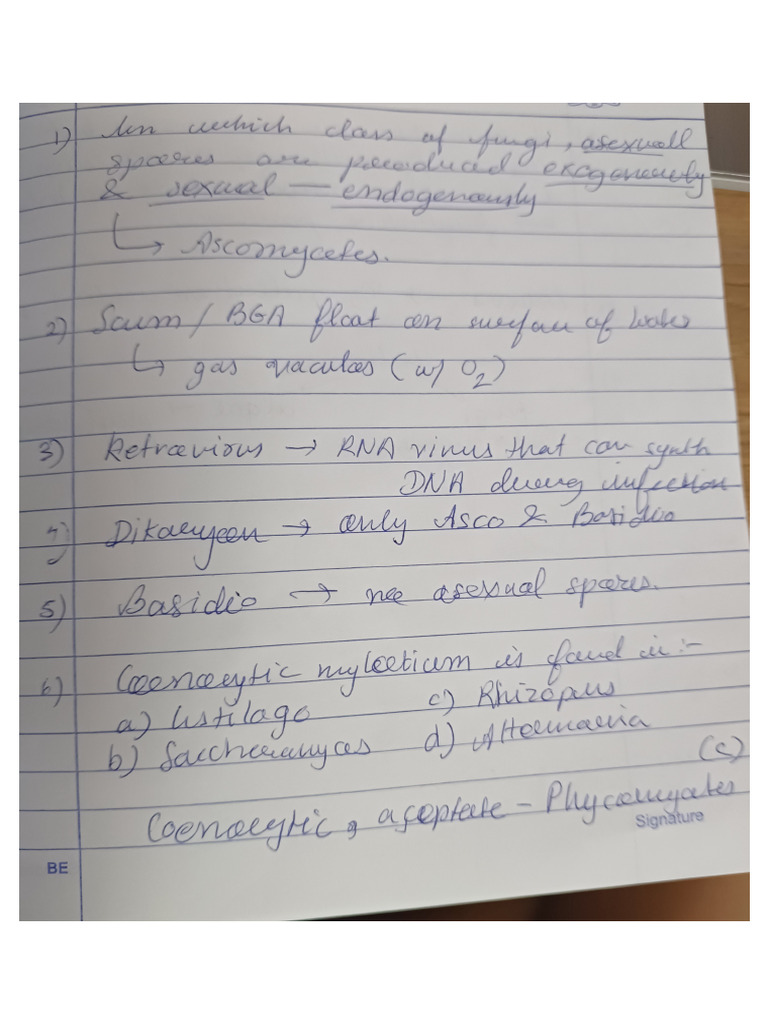 1) In which class of fungi, asexuall
spores are produced exogenously
& sexual — endogenously
↳ Ascomycetes.
2) Scum / BGA float on surface of water
↳ gas vacuoles (w/ O2)
3) Retrovirus → RNA virus that can synth
DNA during infection
4) Dikaryon → only Asco & Basidio
5) Basidio → no asexual spores.
6) Coenocytic mylcetium is found in :-
a) Ustilago c) Rhizopus
b) Saccharomyces d) Alternaria
(c)
Coenocytic, aseptate - Phycomycetes
Signature
BE